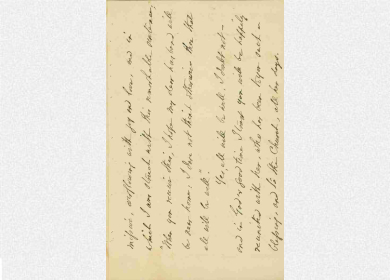 missive, overflowing with joy and love, and in
which I am struck with this remarkable sentence,
"When you receive this, I hope my dear husband will
be near home; I dare not think otherwise than that
all will be well."
Yes, all will be well. I doubt not –
and in God's good time I trust you will be happily
reunited with him, who has been to you such a
blessing, and to the Church, all his days.